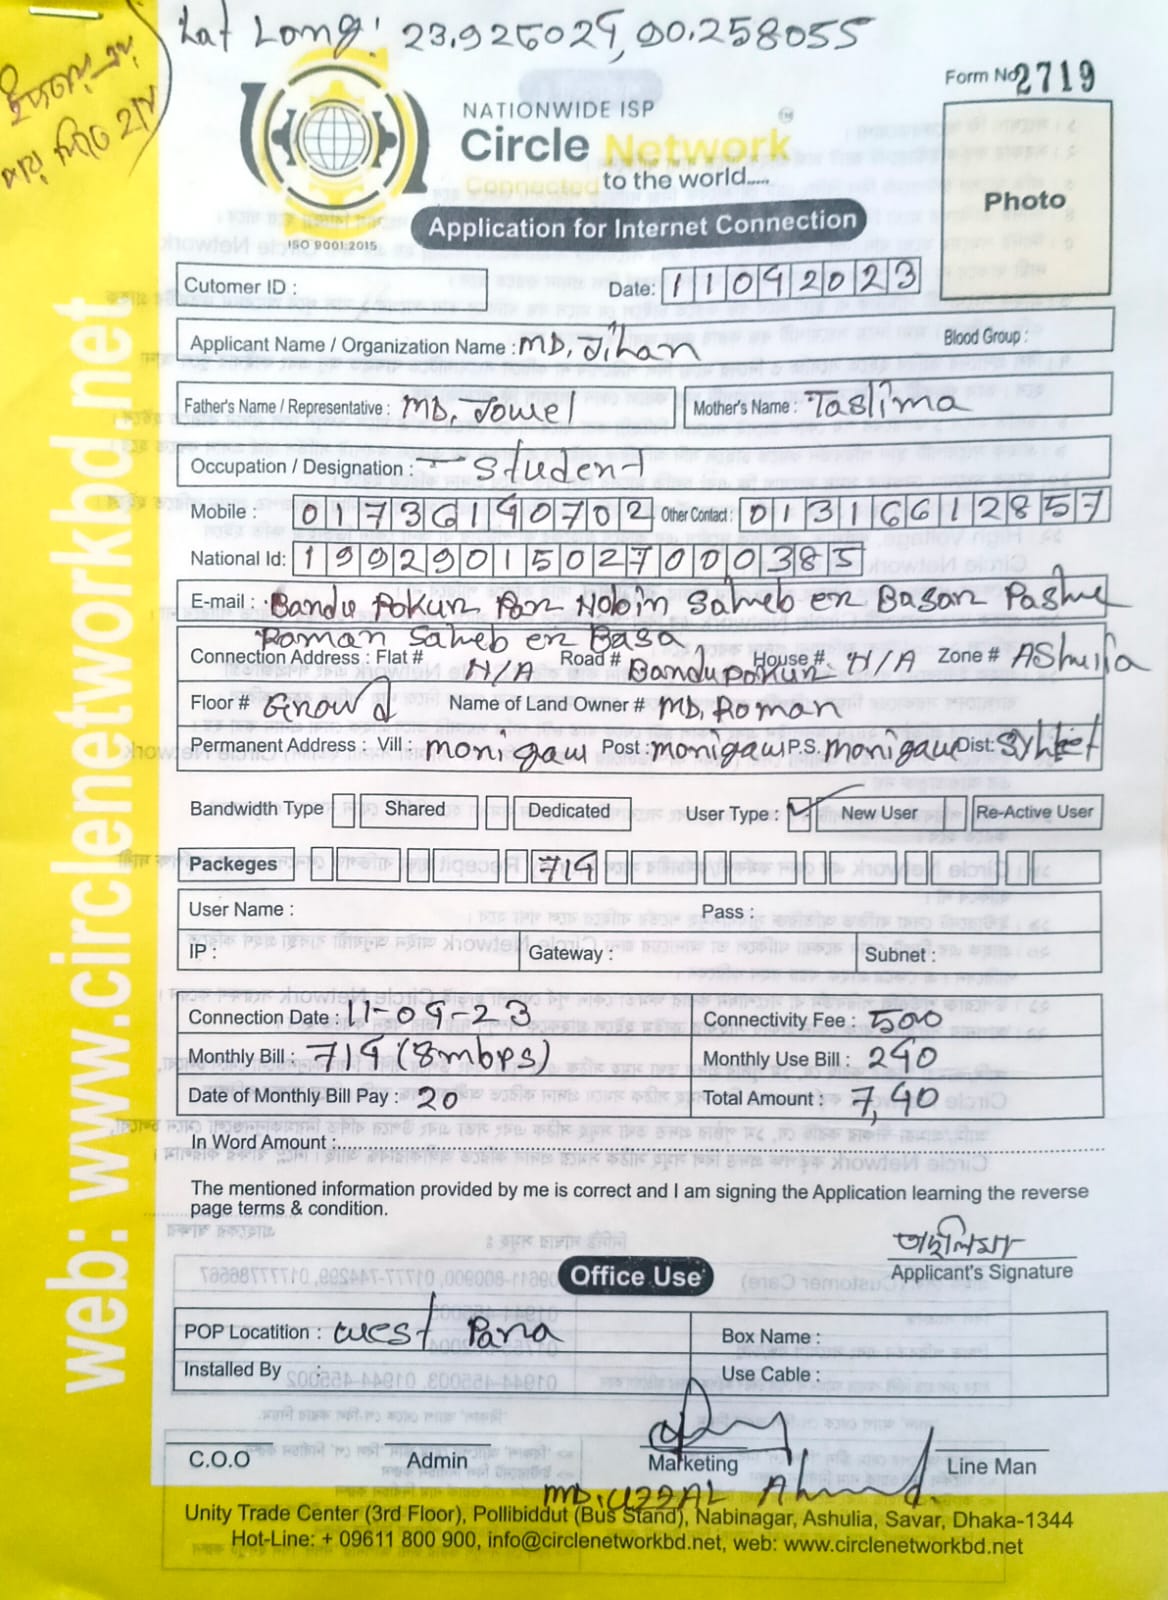 Lat Long: 23.925029, 90.258055
Form No 2719
NATIONWIDE ISP
Circle Network
Connected to the world.....
ISO 9001:2015
Application for Internet Connection
Photo
Cutomer ID :
Date: 11042023
Applicant Name / Organization Name : MD. Jihan
Blood Group :
Father's Name / Representative : MD. Jowel
Mother's Name : Taslima
Occupation / Designation : Student
Mobile : 01736190702 Other Contact : 01316612857
National Id: 19929015027000385
E-mail : Bandu Pokur Par Nobin Saheb er Basar Pashe
Roman Saheb er Basa
Connection Address : Flat # N/A Road # Bandupokur House # N/A Zone # AShulia
Floor # Ground Name of Land Owner # MD. Roman
Permanent Address : Vill : monigaw Post : monigaw P.S. monigaw Dist: Sylhet
Bandwidth Type Shared Dedicated User Type : ✓ New User Re-Active User
Packeges 714
User Name : Pass :
IP : Gateway : Subnet :
Connection Date : 11-04-23 Connectivity Fee : 500
Monthly Bill : 714 (8mbps) Monthly Use Bill : 240
Date of Monthly Bill Pay : 20 Total Amount : 7,40
In Word Amount :
The mentioned information provided by me is correct and I am signing the Application learning the reverse
page terms & condition.
তাছলিমা
Applicant's Signature
Office Use
POP Locatition : West Para Box Name :
Installed By : Use Cable :
C.O.O Admin Marketing Line Man
MD. UZZAL Ahmed
Unity Trade Center (3rd Floor), Pollibiddut (Bus Stand), Nabinagar, Ashulia, Savar, Dhaka-1344
Hot-Line: + 09611 800 900, info@circlenetworkbd.net, web: www.circlenetworkbd.net
web: www.circlenetworkbd.net